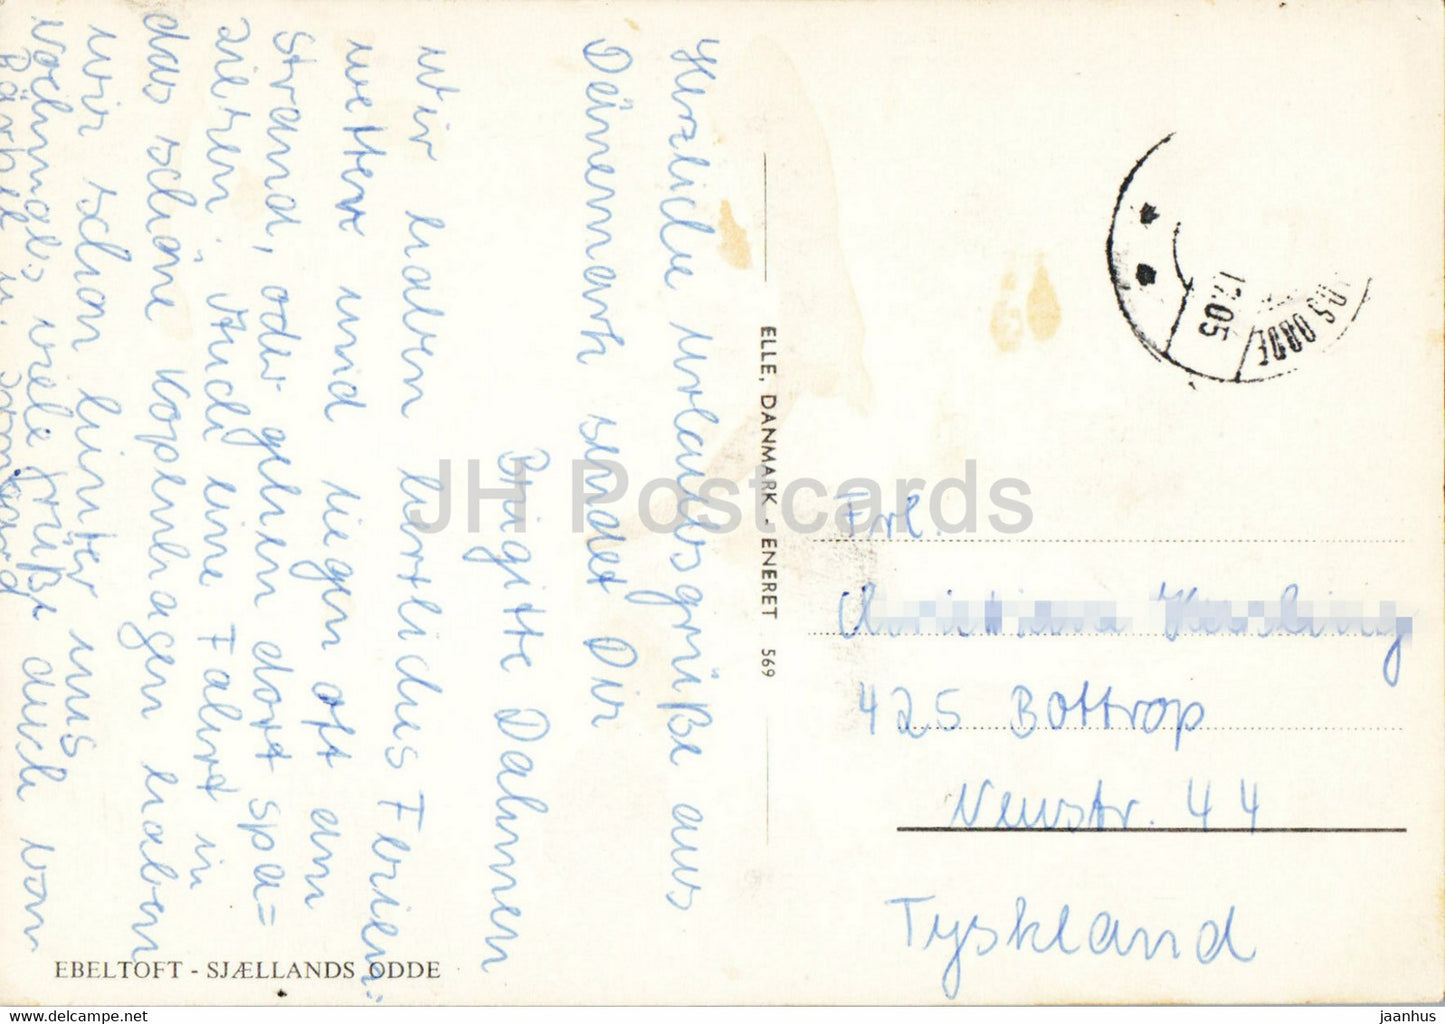 Herzliche Urlaubsgrüße aus
Dänemark sendet Dir
Brigitte Dahmen
Wir haben herrliches Ferien-
wetter und liegen oft am
Strand, oder gehen dort spa=
zieren. Auch eine Fahrt in
das schöne Kopenhagen haben
wir schon hinter uns
Nochmals viele Grüße auch von
Bärbel u.
EBELTOFT - SJÆLLANDS ODDE
ELLE, DANMARK - ENERET 569
17.05
ODDE
Frl.
425 Bottrop
Neustr. 44
Tyskland
JH Postcards
www.delcampe.net
jaanhus